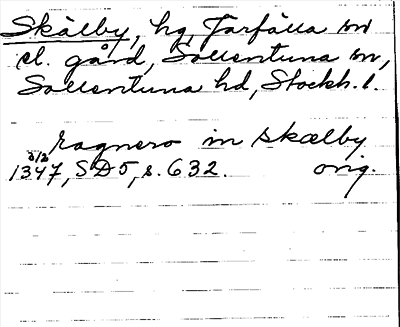 Skälby, hg, Järfälla sn
el. gård, Sollentuna sn,
Sollentuna hd, Stockh. l.
ragnero in skælby
3/2
1347, SD5, s. 632. orig.